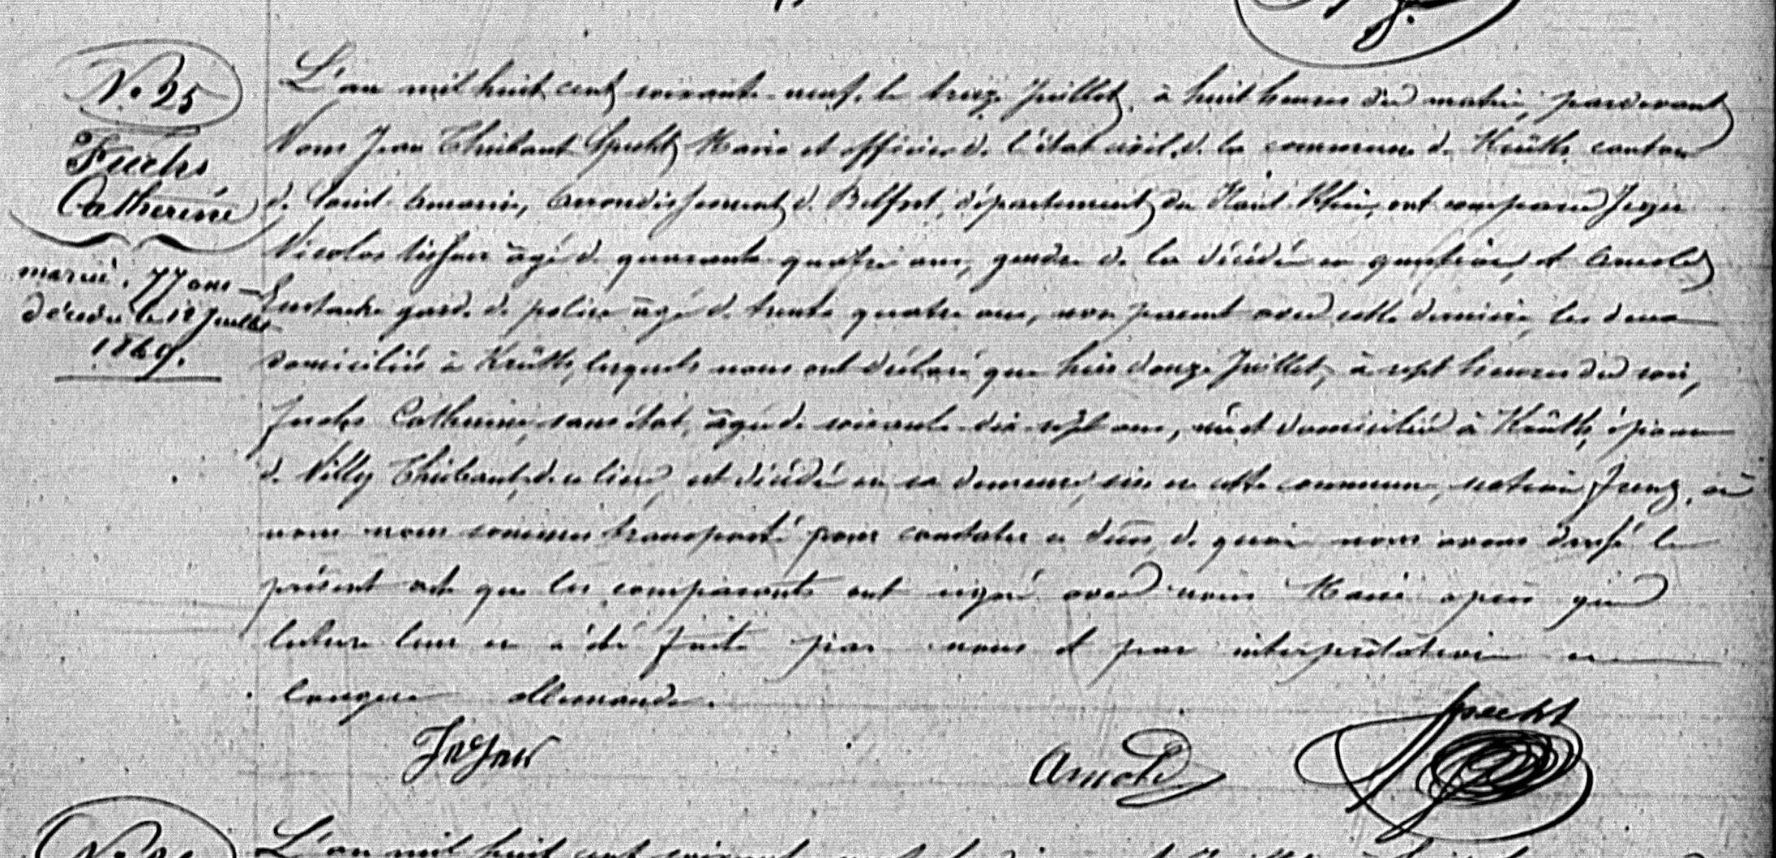 N° 25
Fuchs
Catherine
mariée, 77 ans
décédée le 12 Juillet
1869.
L'an mil huit cent soixante neuf, le treize Juillet, à huit heures du matin, pardevant
Nous Jean Thiébaut Specht, Maire et officier de l'état civil de la commune de Krüth, canton
de Saint Amarin, arrondissement de Belfort, département du Haut Rhin, ont comparu
Nicolas tisseur âgé de quarante quatre ans, gendre de la décédée en question, et Arnold
Eustache garde de police âgé de trente quatre ans, non parent avec cette dernière, les deux
domiciliés à Krüth, lesquels nous ont déclaré que hier douze Juillet, à sept heures du soir,
Fuchs Catherine, sans état, âgée de soixante dix sept ans, née et domiciliée à Krüth, épouse
de Villy Thiébaut, de ce lieu, est décédée en sa demeure, sise en cette commune, section où
nous nous sommes transporté pour constater ce décès, de quoi nous avons dressé le
présent acte que les comparants ont signé avec nous Maire après que
lecture leur en a été faite par nous et par interprétation en
langue allemande.
Arnold Specht
L'an mil huit cent